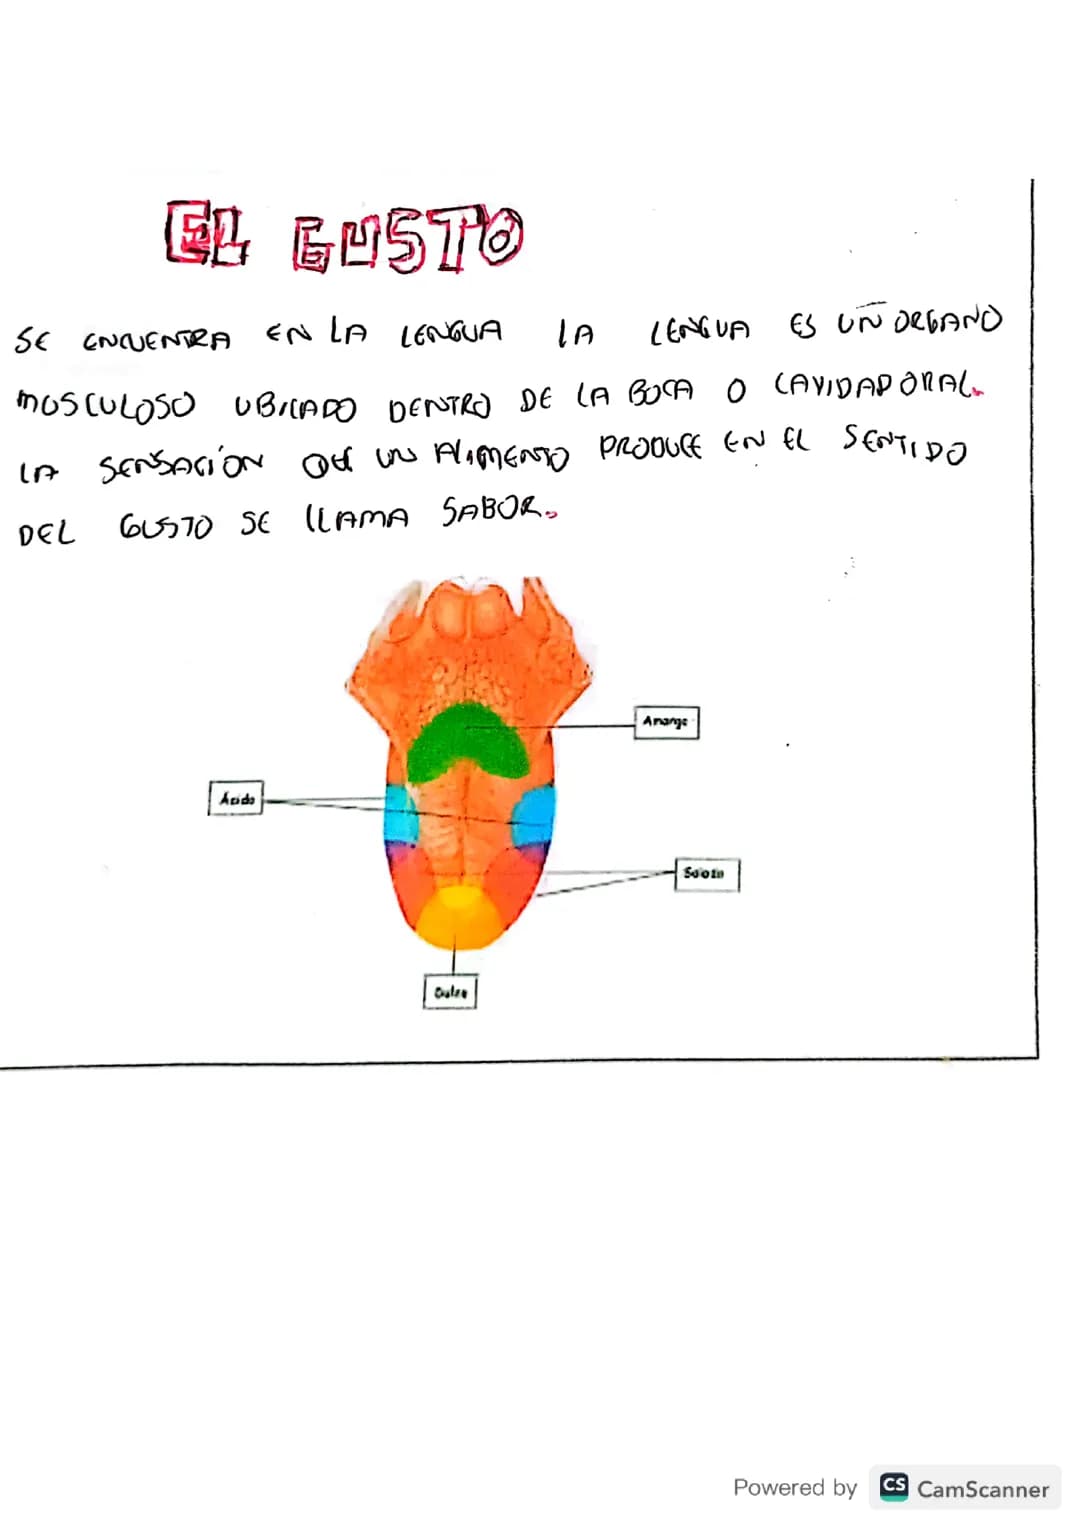 EL GUSTO
SE ENCUENTRA EN LA LENGUA LA LENGUA ES UN ORGANO
MUSCULOSO UBICADO DENTRO DE LA BOCA O CAVIDAD ORAL.
LA SENSACIÓN QUE UN ALIMENTO PRODUCE EN EL SENTIDO
DEL GUSTO SE LLAMA SABOR.
Amargo
Ácido
Salado
Dulce
Powered by CS CamScanner